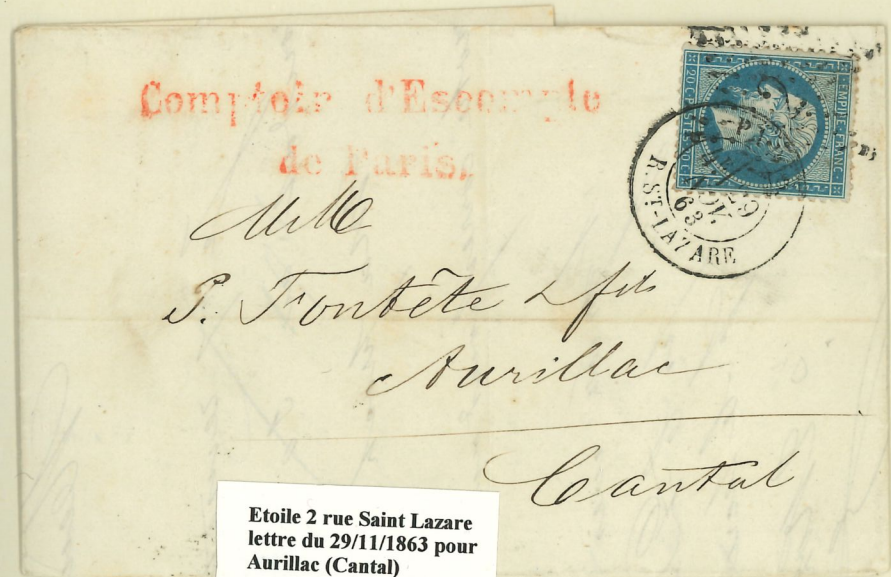 Comptoir d'Escompte
de Paris.
EMPIRE FRANC
20 C POSTES 20 C
29
NOV.
63
R. ST-LAZARE
P. Fontête & fils
Aurillac
Cantal
Etoile 2 rue Saint Lazare
lettre du 29/11/1863 pour
Aurillac (Cantal)